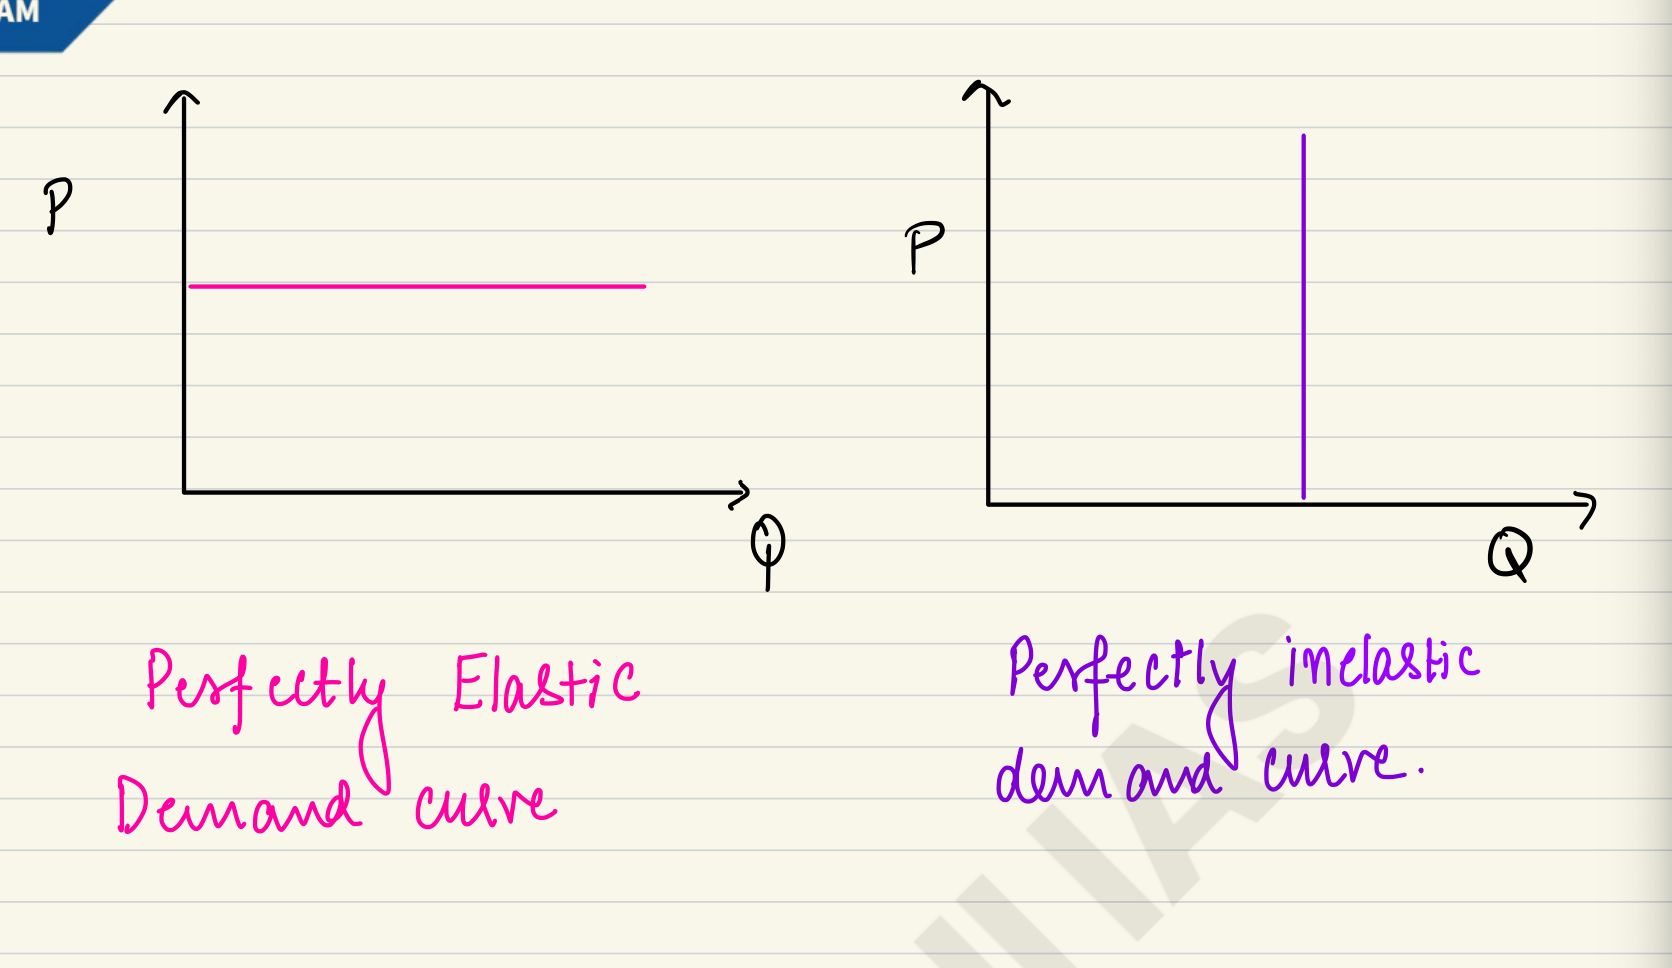 AM
P
Q
P
Q
Perfectly Elastic
Demand curve
Perfectly inelastic
demand curve.
IAS